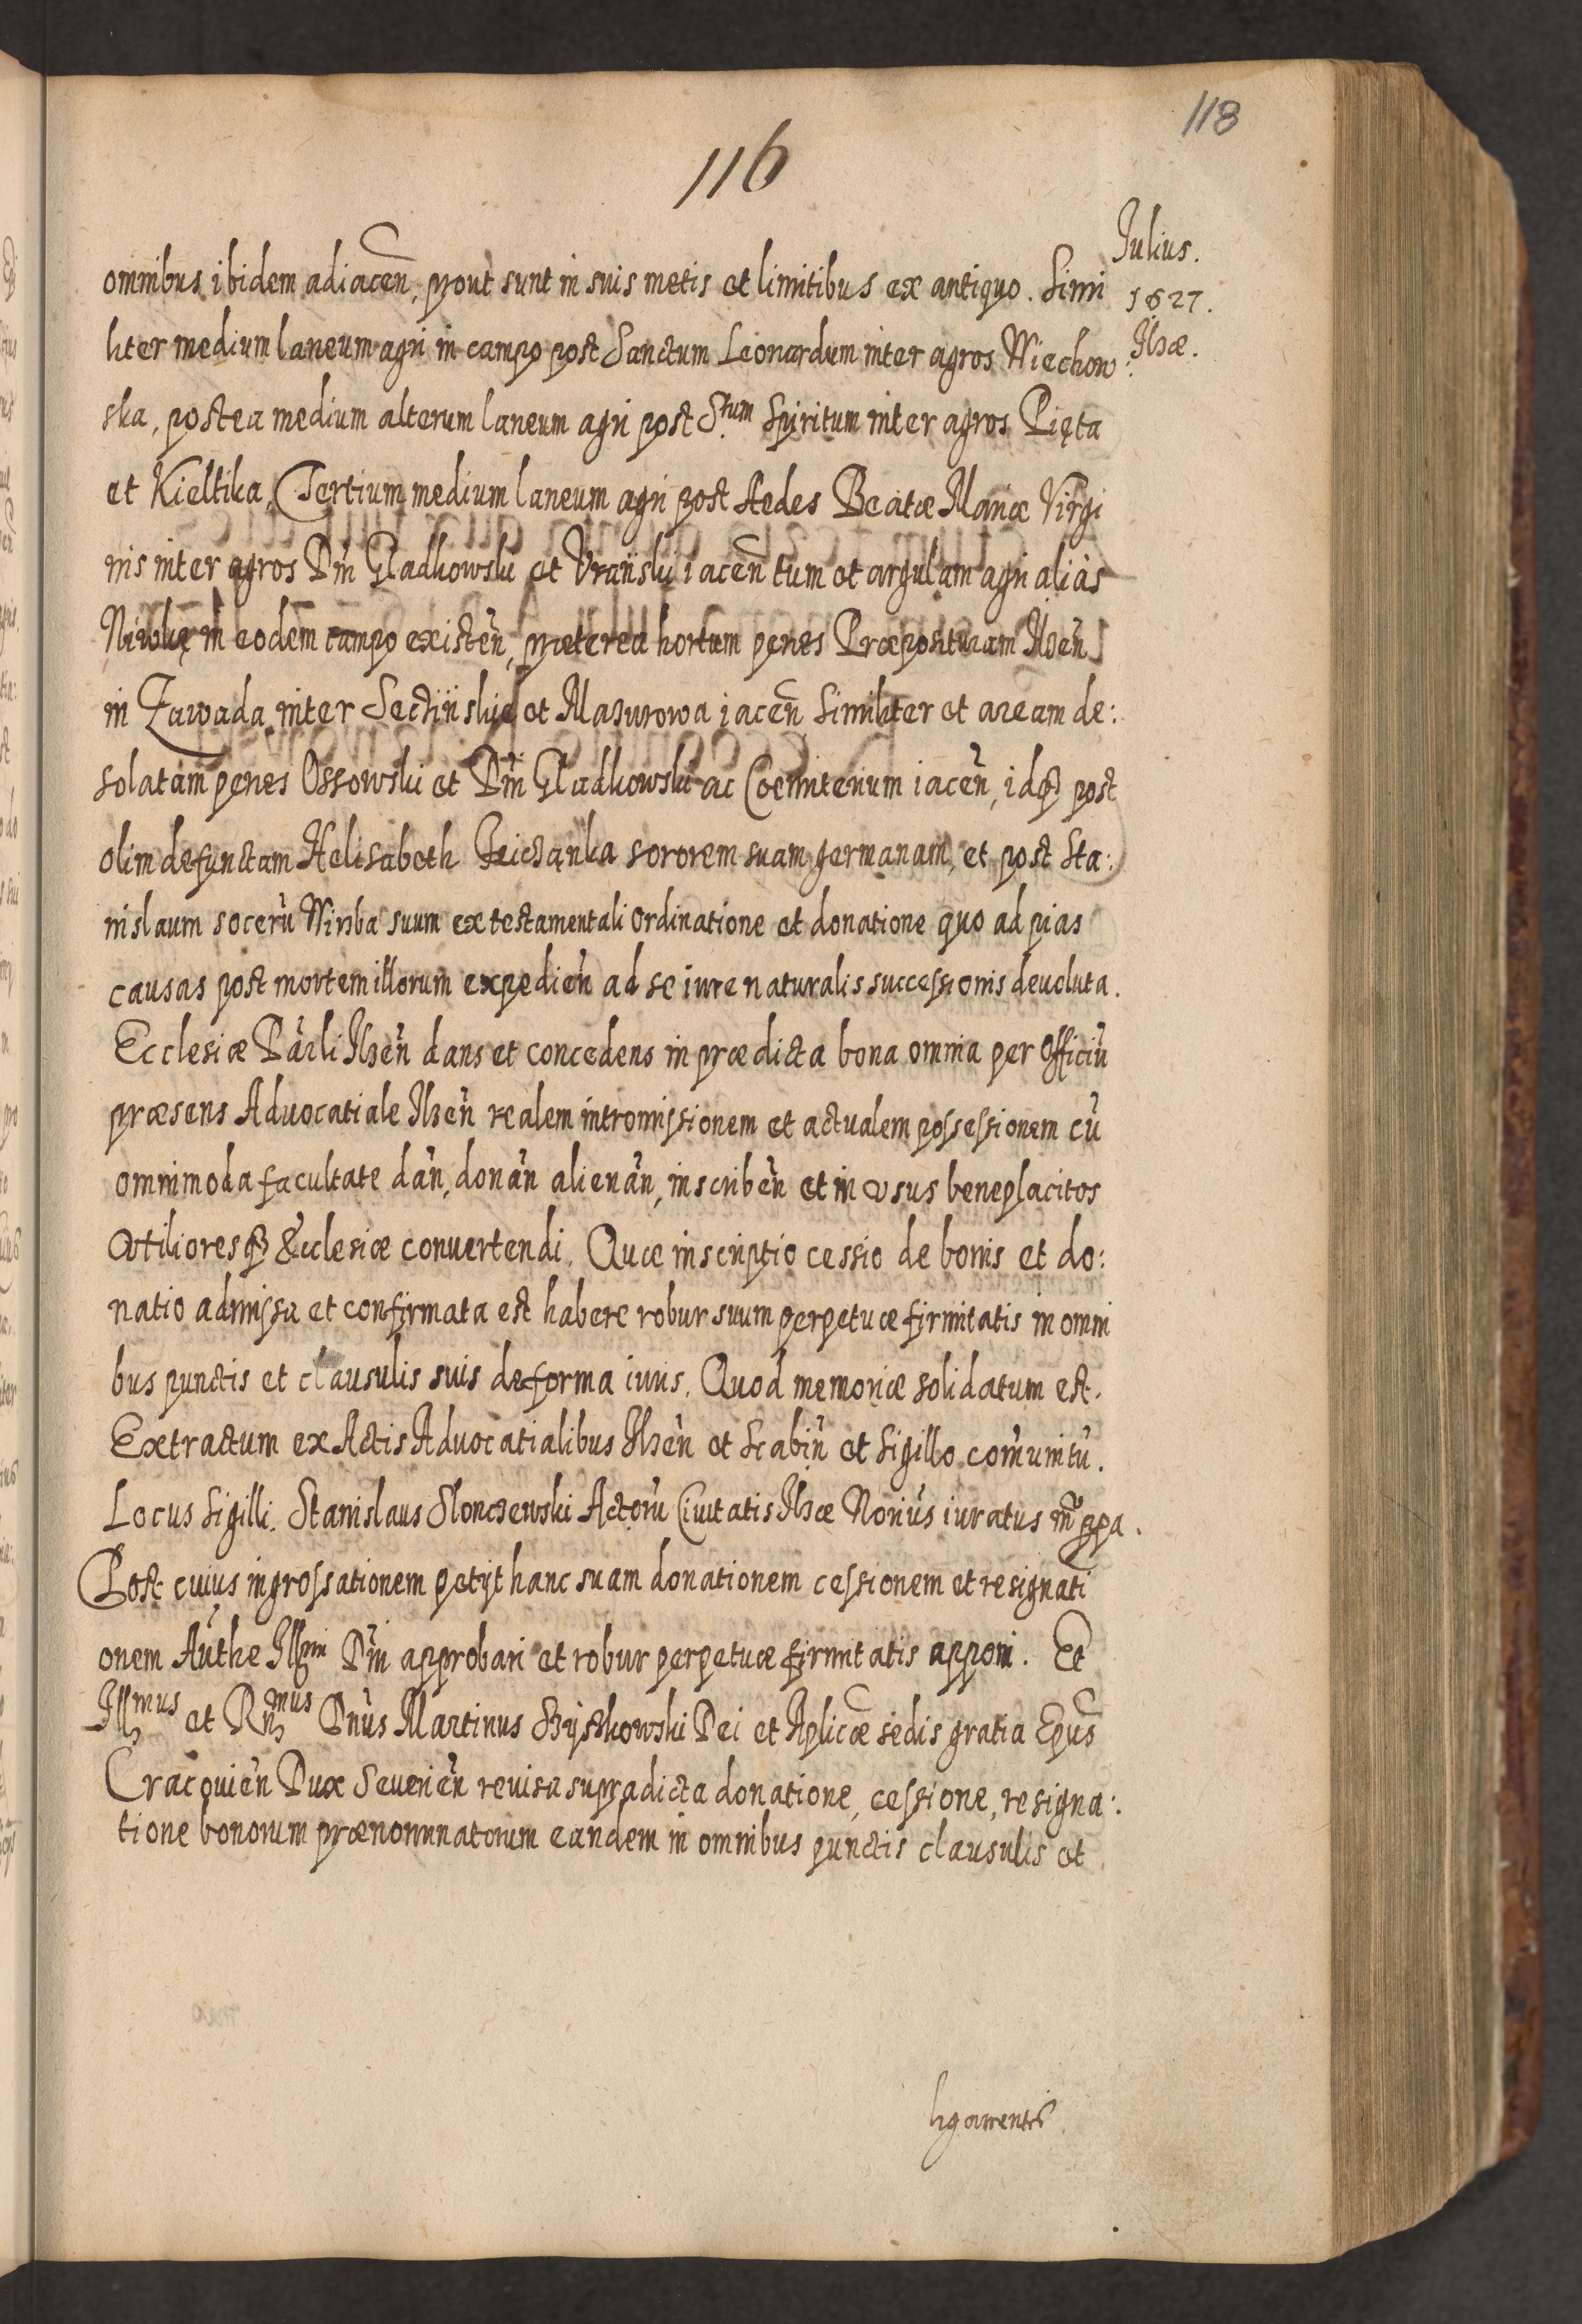 118
116
Julius.
1627.
Ilzæ.
omnibus ibidem adiaceñ, prout sunt in suis metis et limitibus ex antiquo. Simi
liter medium laneum agri in campo post Sanctum Leonardum inter agros Wiechow:
ska, postea medium alterum laneum agri post S.tum Spiritum inter agros Pięta
et Kieltika, Tertium medium laneum agri post Aedes Beatæ Mariæ Virgi
nis inter agros Dñi Gladkowski et Vrański iaceñ tum et argulam agri aliàs
Niwkę in eodem campo existeñ, præterea hortum penes Præposituram Ilzeñ
in Zawada inter et Mazurowa iaceñ, Similiter et aream de:
solatam penes Ossowski et Dñi Gladkowski ac Coemiterium iaceñ, idq3 post
olim defunctam Helisabeth sororem suam germanam, et post Sta:
nislaum socerũ Wirzba suum ex testamentali ordinatione et donatione quo ad pias
causas post mortem illorum expedieñ ad se iure naturalis successionis devoluta.
Ecclesiæ Parłi Ilzeñ dans et concedens in prædicta bona omnia per Officiũ
præsens Advocatiale Ilzeñ realem intromissionem et actualem possessionem cũ
omnimoda facultate dañ, donañ alienañ, inscribeñ et in vsus beneplacitos
Vtilioresq3 Ecclesiæ convertendi. Quæ inscriptio cessio de bonis et do:
natio admissa et confirmata est habere robur suum perpetuæ firmitatis in omni
bus punctis et clausulis suis de forma iuris. Quod memoriæ solidatum est.
Extractum ex Actis Advocatialibus Ilzeñ et Scabiñ et Sigillo com̃unitũ.
Locus Sigilli. Stanislaus Slonczewski Actorũ Civitatis Ilzæ Noriũs iuratus mp̃ppa.
Post cuius ingrossationem petijt hanc suam donationem cessionem et resignati
onem Aũthe Illmi Dñi approbari et robur perpetuæ firmitatis apponi. Et
Illmus et Rñmus Dñus Martinus Szyszkowski Dei et Aplicæ sedis gratia Epũs
Cracovieñ Dux Severieñ revisa supradicta donatione, cessione, resigna:
tione bonorum prænominatorum eandem in omnibus punctis clausulis et
ligamentis